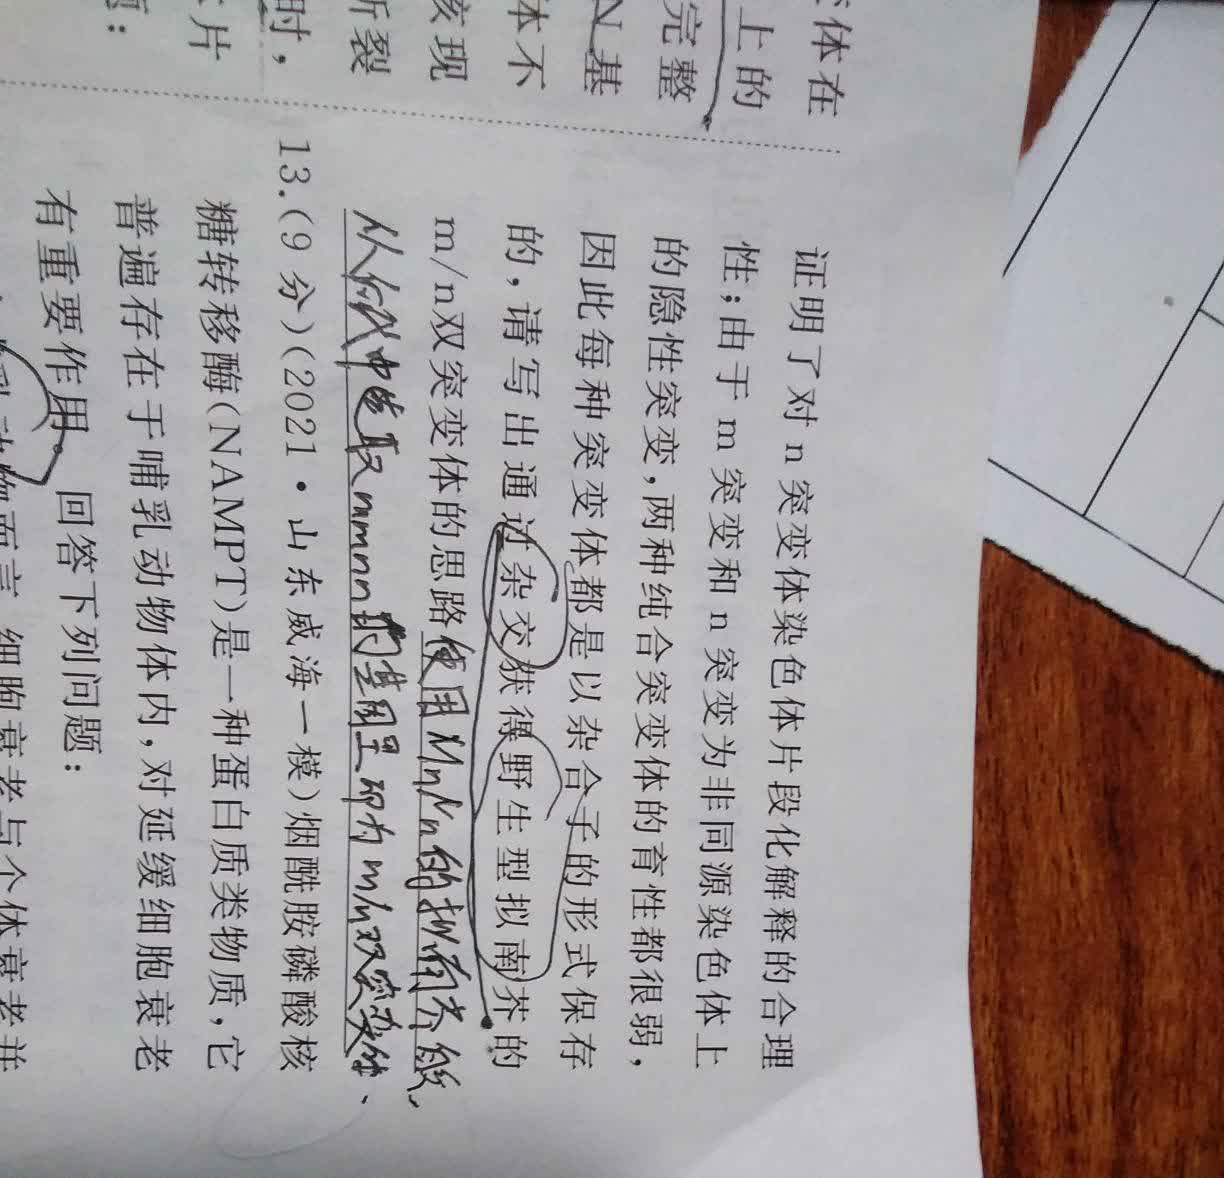 体在
上的
完整
N基
体不
核现
断裂
时,
片
题:
证明了对n突变体染色体片段化解释的合理
性;由于m突变和n突变为非同源染色体上
的隐性突变,两种纯合突变体的育性都很弱,
因此每种突变体都是以杂合子的形式保存
的,请写出通过杂交获得野生型拟南芥的
m/n双突变体的思路使用MmNn的拟南芥
从后代中选取mmnn的 即为m/n双突变体.
13.(9分)(2021·山东威海一模)烟酰胺磷酸核
糖转移酶(NAMPT)是一种蛋白质类物质,它
普遍存在于哺乳动物体内,对延缓细胞衰老
有重要作用。回答下列问题:
乳动物而言,细胞衰老与个体衰老并